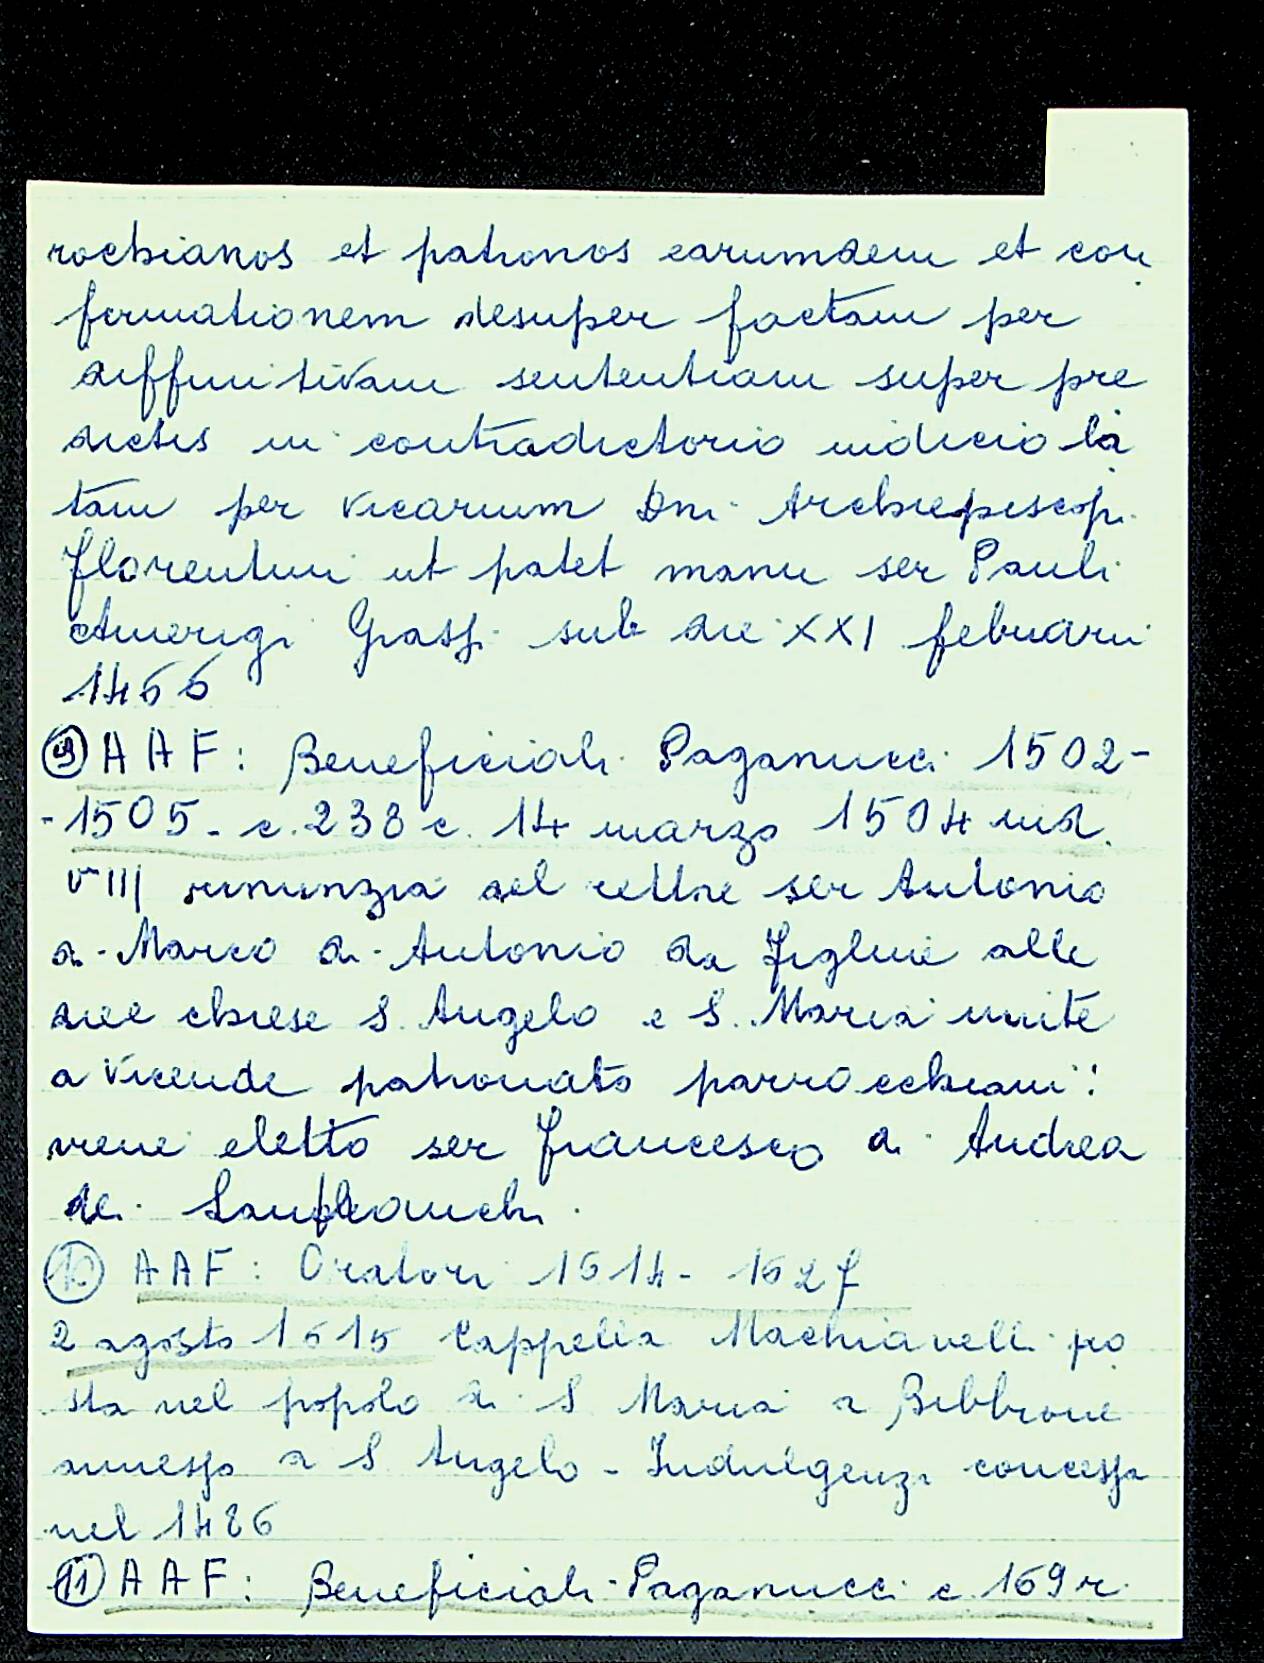 rochianos et patronos earumdem et con
fermationem desuper factam per
diffinitivam sententiam super pre
dictis in contradictorio iudicio la
tam per vicarium Dni Archiepiscopi
florentini ut patet manu ser Pauli
Amerigi Grassi sub die XXI februarii
1466
⑨ A A F : Beneficiali Paganucci 1502-
-1505 - c. 238 c. 14 marzo 1504 ind.
VIII rinunzia del rettore ser Antonio
di Marco di Antonio da Figline alle
due chiese S. Angelo e S. Maria unite
a vicende patronato parrocchiani :
viene eletto ser francesco di Andrea
dei
⑩ A A F : Oratori 1614 - 1627
2 agosto 1615 Cappella Machiavelli po
sta nel popolo di S Maria a Bibbione
annesso a S Angelo - Indulgenzi concessa
nel 1486
⑪ A A F : Beneficiali Paganucci c 169 r